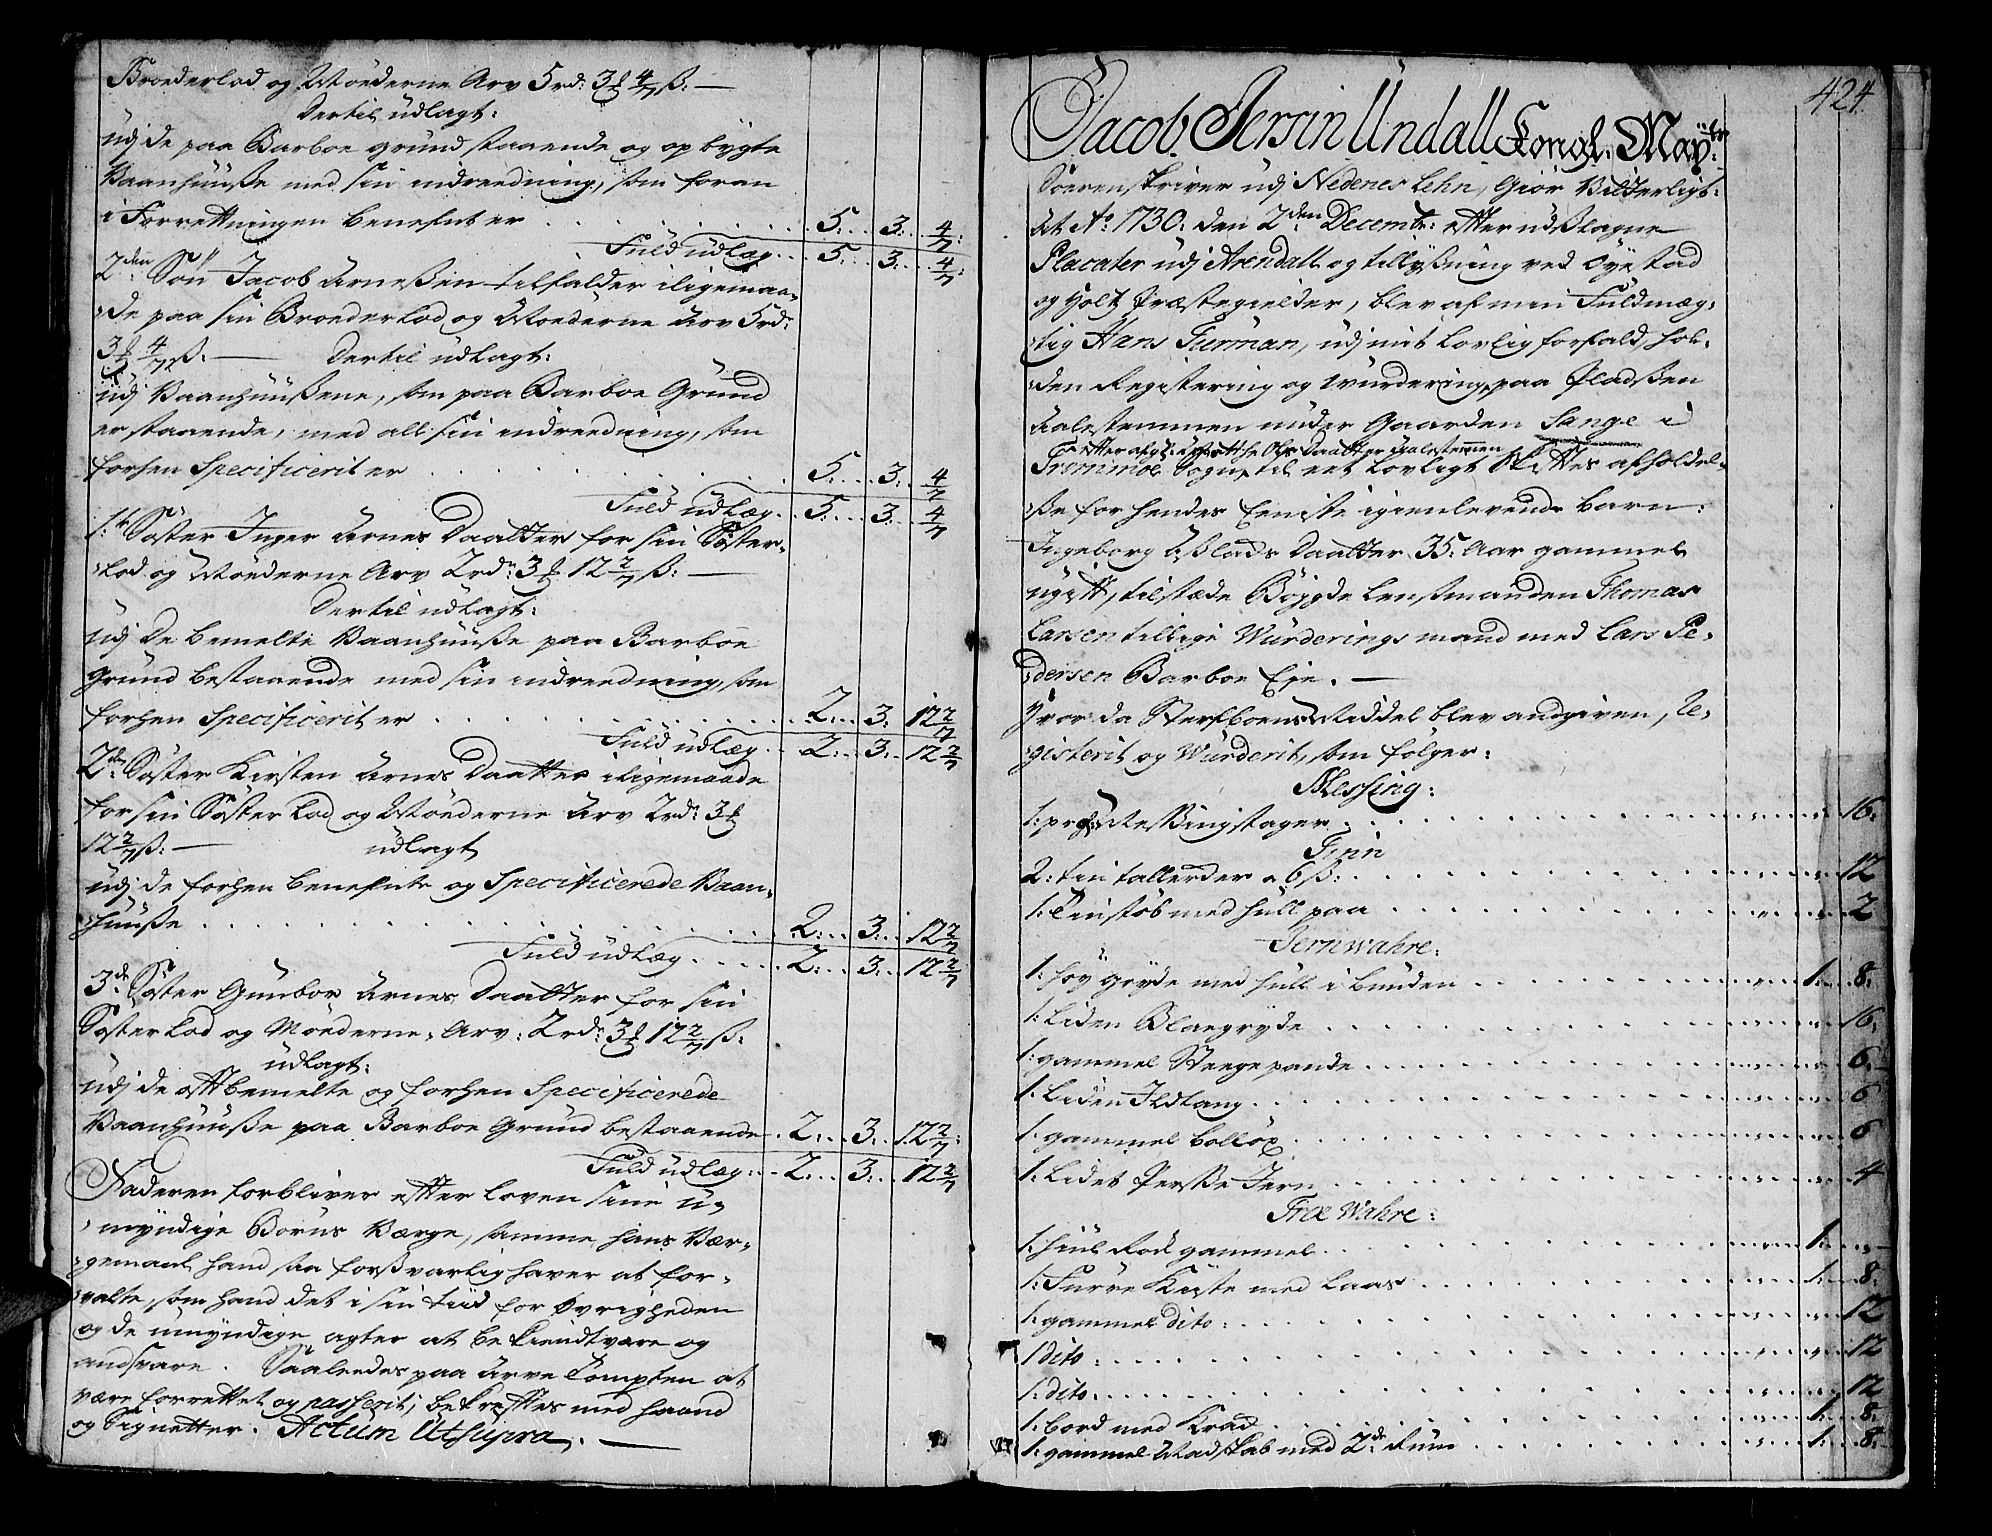 Broederlod og Møederne Arv 5 rd: 3 ₰ 4/7 ß: —
Dertil udlagt:
Udj de paa Barboe grund staaende og opbygte
Vaanhuuße med sin indreedning, som foran
i Forrettningen benefnt er . . . 5: 3: 4/7:
Fuld udlæg . . 5: 3: 4/7:
2den Søn Jacob Arneßen tilfalder iligemaa-
de paa sin Broederlod og Møederne Arv 5 rd:
3 ₰ 4/7 ß: — Dertil udlagt:
Udj Vaanhuußene, som paa Barboe Grund
er staaende, med all sin indreedning, som
forhen Specificerit er . . . 5: 3: 4/7
Fuld udlæg . . 5: 3: 4/7
1te Søster Inger Arnes Daatter for sin Søster-
lod og Møederne Arv 2 rd: 3 ₰ 12 2/7 ß: —
Dertil udlagt:
Udj De bemelte Vaanhuuße paa Barboe
Grund bestaaende med sin indreedning, som
forhen Specificerit er . . . 2: 3: 12 2/7
Fuld udlæg . . 2: 3: 12 2/7
2den Søster Kirsten Arnes Daatter iligemaade
for sin Søster Lod og Møederne Arv 2 rd: 3 ₰
12 2/7 ß: — udlagt
Udj de forhen benefnte og Specificerede Vaan-
huuße . . . 2: 3: 12 2/7
Fuld udlæg . . . 2: 3: 12 2/7
3de Søster Gunbor Arnes Daatter for sin
Søster Lod og Møederne Arv: 2 rd: 3 ₰ 12 2/7 ß:
udlagt:
Udj de offtbemelte og forhen Specificerede
Vaanhuuße paa Barboe Grund bestaaende . 2: 3: 12 2/7:
Fuld udlæg: . 2: 3: 12 2/7
Faderen forbliver effter loven sine u-
myndige Børns Værge, samme hans Vær-
gemaal hand saa forßvarlig haver at for-
valte, som hand det i sin tiid for Øvrigheden
og de umyndige agter at bekiendt være og
andsvare. Saaledes paa Arve Tompten at
være forrettet og passerit, bekrefftes med haand
og Signetter. Actum Utsupra. —
424
Jacob Jersin Undall Kongl. Mayts:
Sorenskriver udj Nedenes Lehn, Giør Vitterligt:
At Ao: 1730: den 2den Decembr: effter udßlagne
Placater udj Arendall og tillyßning ved Øyestad
og Holt Præstegielder, blev af min Fuldmæg-
tig Hans Furman, udj mit lovlig forfald, hol-
den Registering og Wurdering paa Pladßen
Aalestemmen under Gaarden Lange i
Effter afgl: Aßlath Ols Daatter Aalestemmen
Tromøe Sogn, til eet lovligt Skifftes afholdel-
ße for hendes eeniste igienlevende barn:
Ingeborg Aßlads Daatter 35: Aar gammel
ugifft, tilstæde Bøygde Lensmanden Thomas
Larsen tillige Wurderings mand med Lars Pe-
dersen Barboe Eje. —
Hvor da Sterfboens Middel blev andgiven, Re-
gisterit og Wurderit, som følger:
Messing:
1: pr: Meßingstager . . . 16:
Tinn
2: tin tallerder a 6 ß: . . . 12
1: Tinstøb med hull paa . . . 2
Jernwahre:
1: høy gryde med hull i bunden . . . 1: 8:
1: liden Blaegryde . . . 16:
1: gammel Steegepande . . . 6:
1: liden Ildtang . . . 6
1: gammel bolløx . . . 6
1: lidet Perße Jern . . . 4
Træ Wahre:
1: hiul Rok gammel . . . 1:
1: Furre Kiste med laas . . . 1: 8:
1: gammel dito: . . . 12
1 dito: . . . 12
1: dito: . . . 12
1: bord med Krak . . . 1: 8:
1: gammel Madskab med 2de Rum . . . 1: 8: